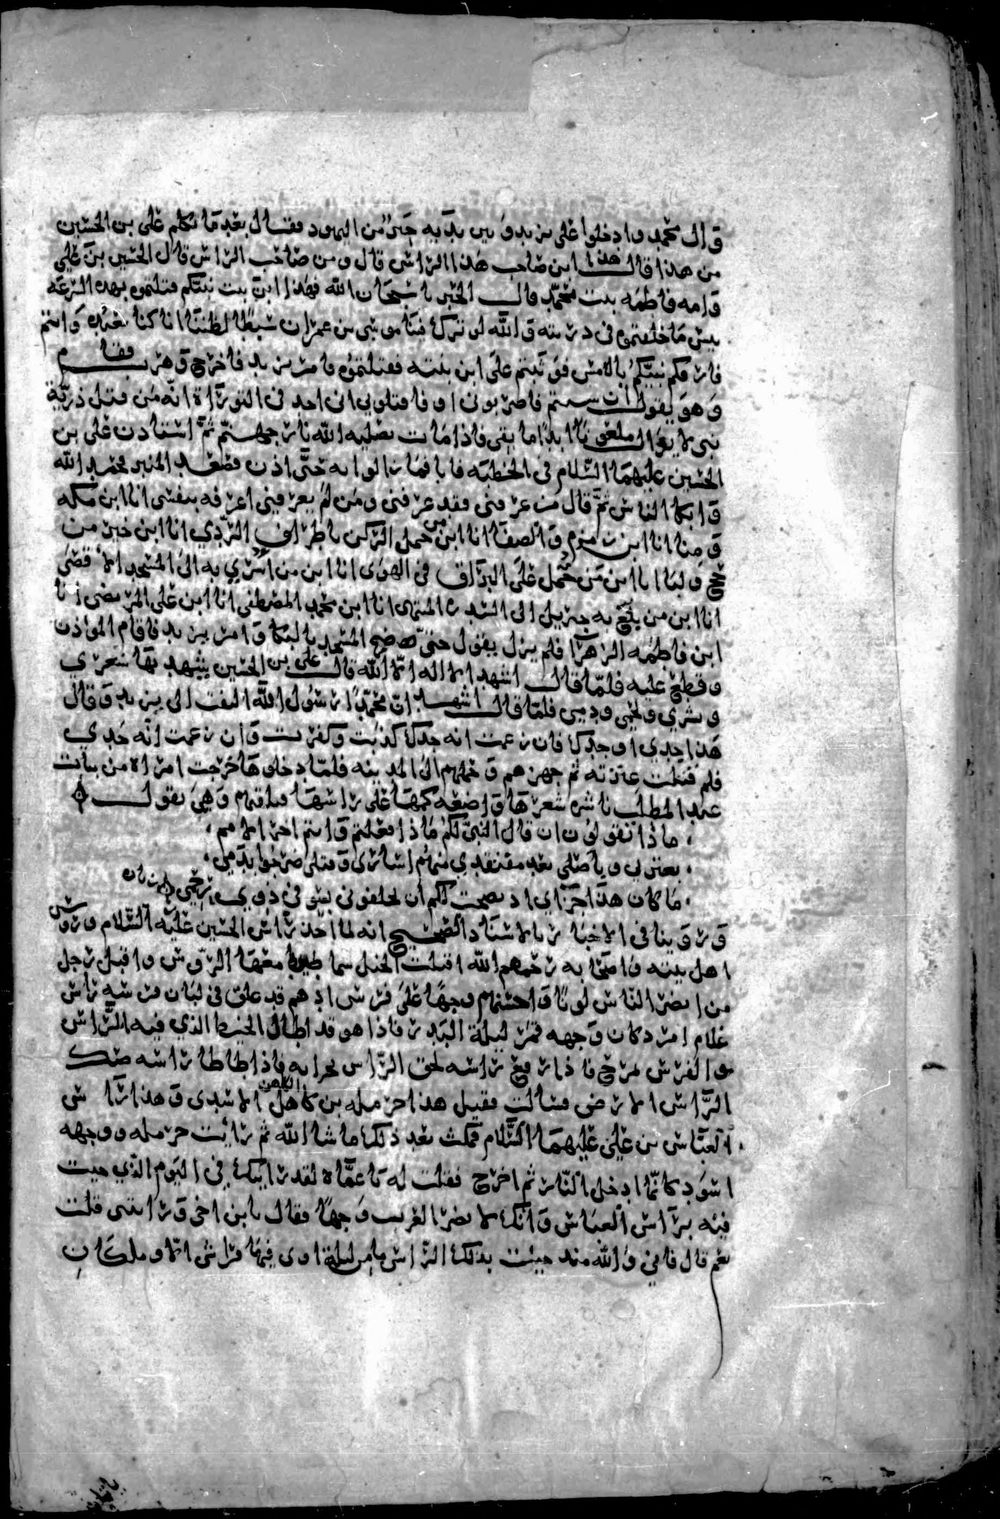 قال محمد وادخلوا على يزيد وبين يديه حبر من اليهود فقال بعد ما تكلم علي بن الحسين
من هذا قال هذا ابن صاحب هذا الراس قال ومن صاحب الراس قال الحسين بن علي
وامه فاطمه بنت محمد قال الحبر يا سبحان الله فهذا ابن بنت نبيكم قتلتموه بهذه السرعه
بئس ما خلفتموه في ذريته والله لو ترك فينا موسى بن عمران سبطا لظننا انا كنا نعبده وانتم
فارقكم نبيكم بالامس فوثبتم على ابن بنته فقتلتموه فامر يزيد فاخرج فقام
وهو يقول ان شيتم فاضربوني او فاقتلوني اني اجد في التوراة انه من قتل ذرية
نبي لا يزال ملعونا ابدا ما بقي فاذا مات يصليه الله نار جهنم ثم استاذن علي بن
الحسين عليهما السلام في الخطبه فابا فما زالوا به حتى اذن فصعد المنبر فحمد الله
وابكا الناس ثم قال من عرفني فقد عرفني ومن لم يعرفني اعرفه بنفسي انا ابن مكه
ومنا انا ابن زمزم والصفا انا ابن من حمل الركن باطراف الردي انا ابن خير من
حج ولبا انا ابن من حمل على البراق في الهوى انا ابن من اسري به الى المسجد الاقصى
انا ابن من بلغ به جبريل الى السدرة المنتهى انا ابن محمد المصطفى انا ابن علي المرتضى انا
ابن فاطمه الزهرا فلم يزل يقول حتى ضج المسجد بالبكا وامر يزيد فاقام الموذن
وقطع عليه فلما قال اشهد الا اله الا الله قال علي بن الحسين يشهد بها شعري
وبشري ولحمي ودمي فلما قال اشهد ان محمدا رسول الله التفت الى يزيد وقال
هذا جدي او جدك فان زعمت انه جدك كذبت وكفرت وان زعمت انه جدي
فلم قتلت عترته ثم جهزهم وحملهم الى المدينه فلما دخلوها خرجت امراة من بنات
عبد المطلب ناشره شعرها واضعه كمها على راسها تلقتهم وهي تقول
ماذا تقولون ان قال النبي لكم ماذا فعلتم وانتم اخر الامم
بعترتي وباهلي بعد مفتقدي منهم اسارى وقتلى ضرجوا بدمي
ما كان هذا جزاي اذ نصحت لكم ان تخلفوني بسو في ذوي رحمي
وروينا في الاخبار بالاسناد الصحيح انه لما اخذ راس الحسين عليه السلام وروس
اهل بيته واصحابه رحمهم الله اقبلت الخيل معها الروس واقبل رجل
من انضر الناس لونا واحسنهم وجها على فرس ادهم قد علق في لبان فرسه راس
غلام امرد كان وجهه قمر ليلة البدر فاذا هو قد اطال الخيط الذي فيه الراس
والفرس يمرح فاذا رفع راسه لحق الراس بجرانه فاذا طاطا راسه صك
الراس الارض فسالت فقيل هذا حرمله بن كاهل الاسدي وهذا راس
العباس بن علي عليهما السلام فمكث بعد ذلك ما شا الله ثم رايت حرمله ووجهه
اسود كانما ادخل النار ثم اخرج فقلت له يا عماه لقد رايتك في اليوم الذي جيت
فيه براس العباس وانك لانضر العرب وجها فقال يابن اخي ورايتني قلت
نعم قال فاني والله منذ جيت بذلك الراس ما من ليلة اوي فيها فراشي الا وملكان